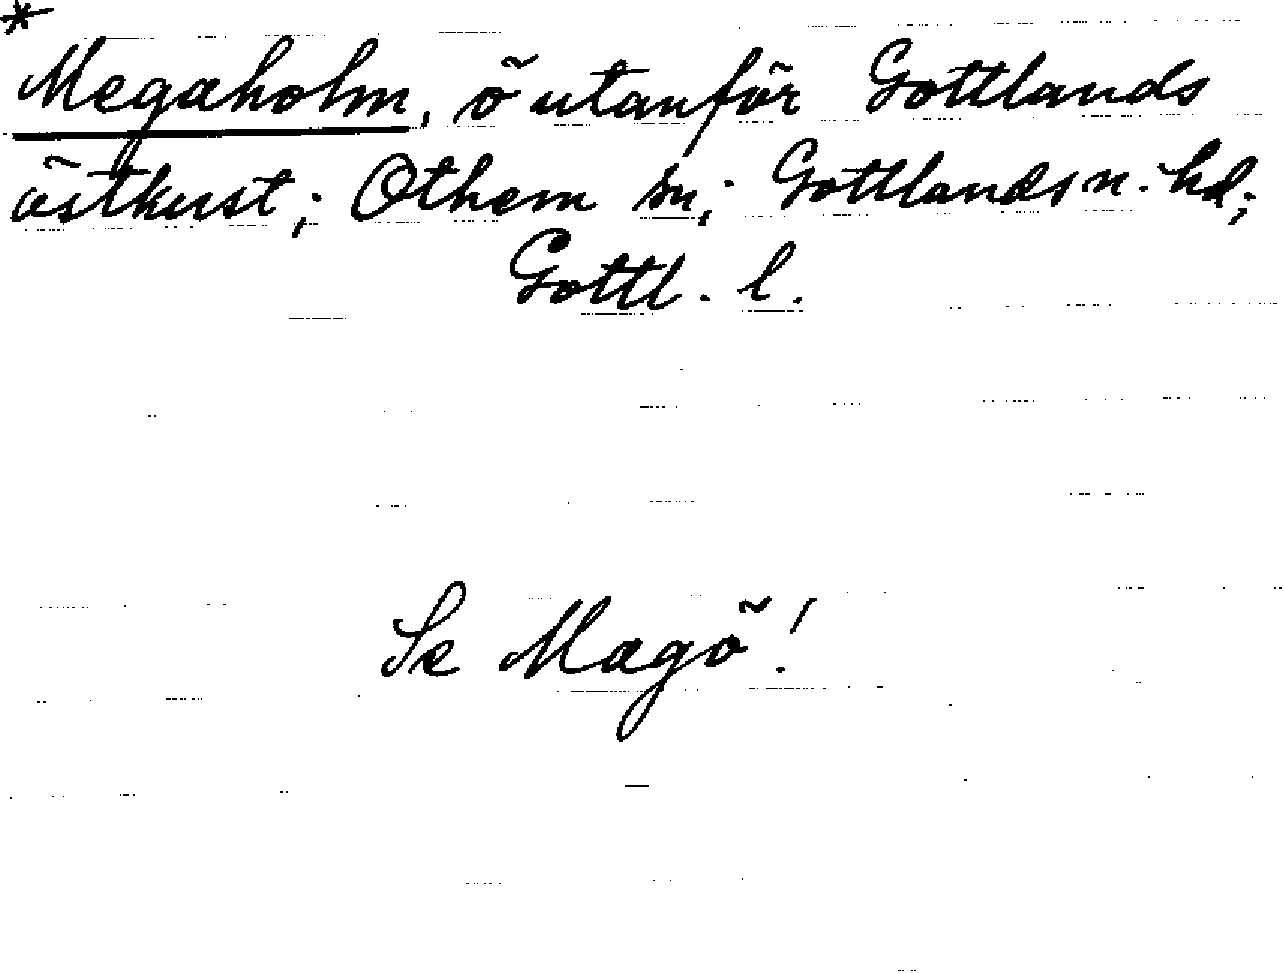 *
Megaholm, ö utanför Gottlands
östkust; Othem sn; Gottlands n. hd;
Gottl. l.
Se Magö!